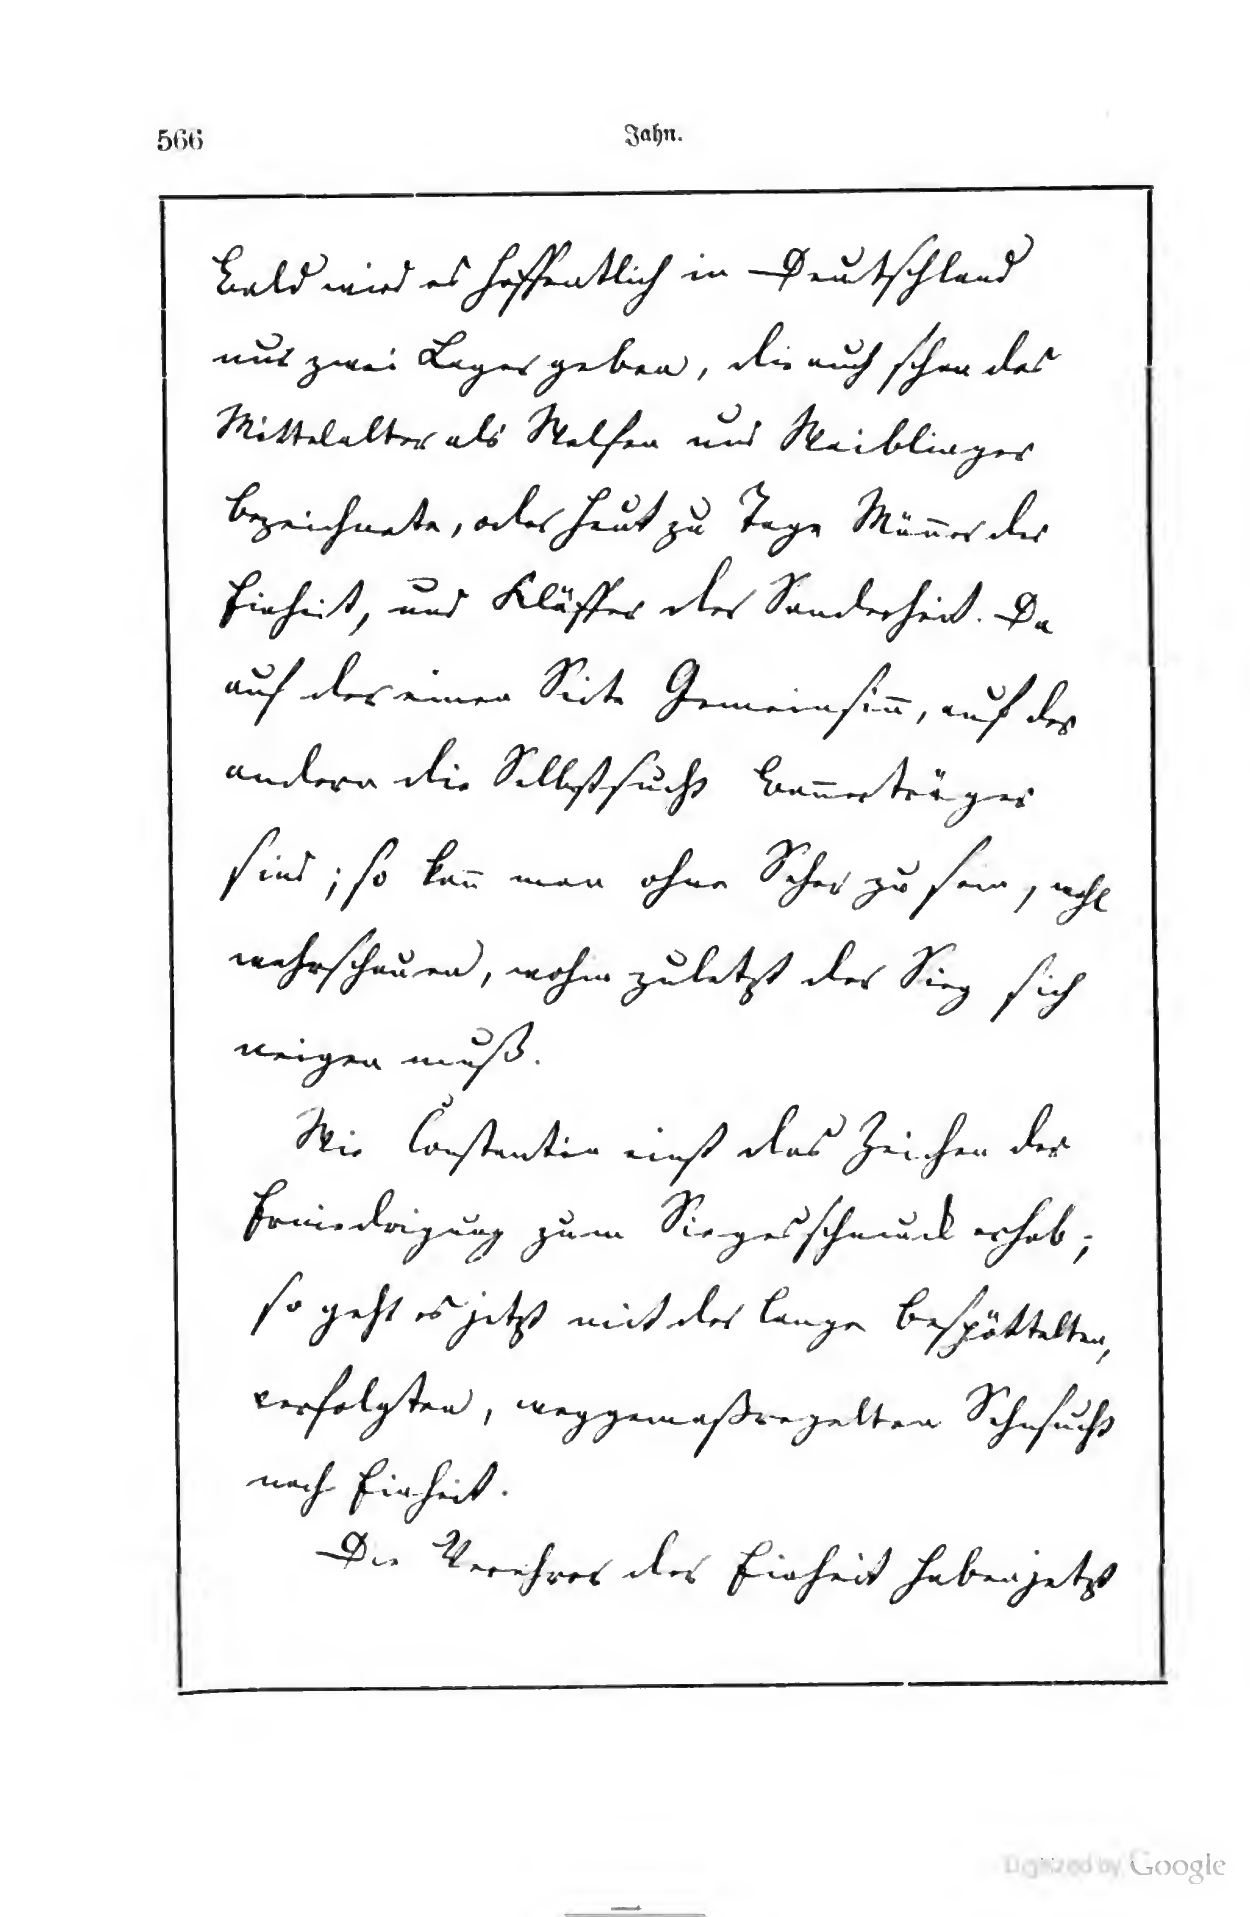 566
Jahn.
Bald wird es hoffentlich in Deutschland
nur zwei Lager geben, die auch schon das
Mittelalter als Welfen und Waiblinger
bezeichnete, oder heut zu Tage Män̄er der
Einheit, und Kläffer der Sonderheit. Da
auf der einen Seite Gemeinsin̄, auf der
andern die Selbstsucht Ban̄erträger
sind; so kan̄ man ohne Seher zu sein, wohl
wahrschauen, wohin zuletzt der Sieg sich
neigen muß.
Wie Constantin einst das Zeichen der
Erniedrigung zum Siegesschmuck erhob;
so geht es jetzt mit der lange bespöttelten,
verfolgten, weggemaßregelten Sehnsucht
nach Einheit.
Die Verehrer der Einheit haben jetzt
Digitized by Google